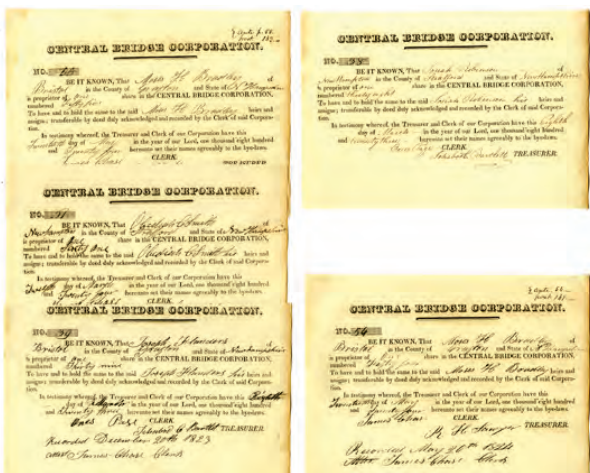 CENTRAL BRIDGE CORPORATION.
NO.
BE IT KNOWN, That Moses H Bradley of
Bristol in the County of Grafton and State of
is proprietor of one share in the CENTRAL BRIDGE CORPORATION,
numbered
To have and to hold the same to the said Moses H Bradley heirs and
assigns; transferable by deed duly acknowledged and recorded by the Clerk of said Corpora-
tion.
In testimony whereof, the Treasurer and Clerk of our Corporation have this
day of May in the year of our Lord, one thousand eight hundred
and twenty four hereunto set their names agreeably to the byelaws.
James Chase CLERK.
CENTRAL BRIDGE CORPORATION.
NO.
BE IT KNOWN, That Obediah C Smith of
in the County of and State of New Hampshire
is proprietor of one share in the CENTRAL BRIDGE CORPORATION,
numbered one
To have and to hold the same to the said Obediah C Smith his heirs and
assigns; transferable by deed duly acknowledged and recorded by the Clerk of said Corpora-
tion.
In testimony whereof, the Treasurer and Clerk of our Corporation have this
day of in the year of our Lord, one thousand eight hundred
and Twenty four hereunto set their names agreeably to the byelaws.
CLERK.
CENTRAL BRIDGE CORPORATION.
NO. 39
BE IT KNOWN, That Joseph Flanders of
Bristol in the County of Grafton and State of Newhampshire
is proprietor of one share in the CENTRAL BRIDGE CORPORATION,
numbered thirty nine
To have and to hold the same to the said Joseph Flanders his heirs and
assigns; transferable by deed duly acknowledged and recorded by the Clerk of said Corpora-
tion.
In testimony whereof, the Treasurer and Clerk of our Corporation have this
day of in the year of our Lord, one thousand eight hundred
and twenty three hereunto set their names agreeably to the byelaws.
CLERK.
TREASURER.
Recorded December 20th 1823
attest James Chase Clerk
CENTRAL BRIDGE CORPORATION.
NO.
BE IT KNOWN, That of
New Hampton in the County of Strafford and State of New Hampshire
is proprietor of one share in the CENTRAL BRIDGE CORPORATION,
numbered
To have and to hold the same to the said his heirs and
assigns; transferable by deed duly acknowledged and recorded by the Clerk of said Corpora-
tion.
In testimony whereof, the Treasurer and Clerk of our Corporation have this
day of March in the year of our Lord, one thousand eight hundred
and twenty three hereunto set their names agreeably to the byelaws.
CLERK.
TREASURER.
CENTRAL BRIDGE CORPORATION.
NO. 54
BE IT KNOWN, That Moses H Bradley of
Bristol in the County of Grafton and State of
is proprietor of one share in the CENTRAL BRIDGE CORPORATION,
numbered fifty four
To have and to hold the same to the said Moses H Bradley heirs and
assigns; transferable by deed duly acknowledged and recorded by the Clerk of said Corpora-
tion.
In testimony whereof, the Treasurer and Clerk of our Corporation have this
day of May in the year of our Lord, one thousand eight hundred
and twenty four hereunto set their names agreeably to the byelaws.
James Chase CLERK.
Sawyer TREASURER.
Recorded May 20th 1824
Attest James Chase Clerk